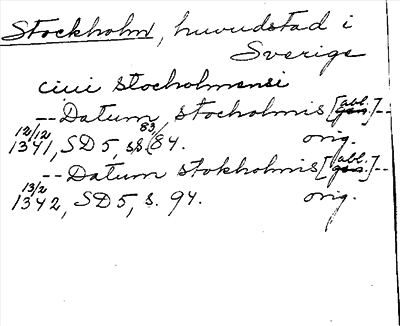 Stockholm, huvudstad i
Sverige
ciui stocholmensi
--Datum stocholmis [abl.]--
12/12 1341, SD5, ss. 83/84. orig.
--Datum stokholmis [abl.]--
13/2 1342, SD5, s. 94. orig.